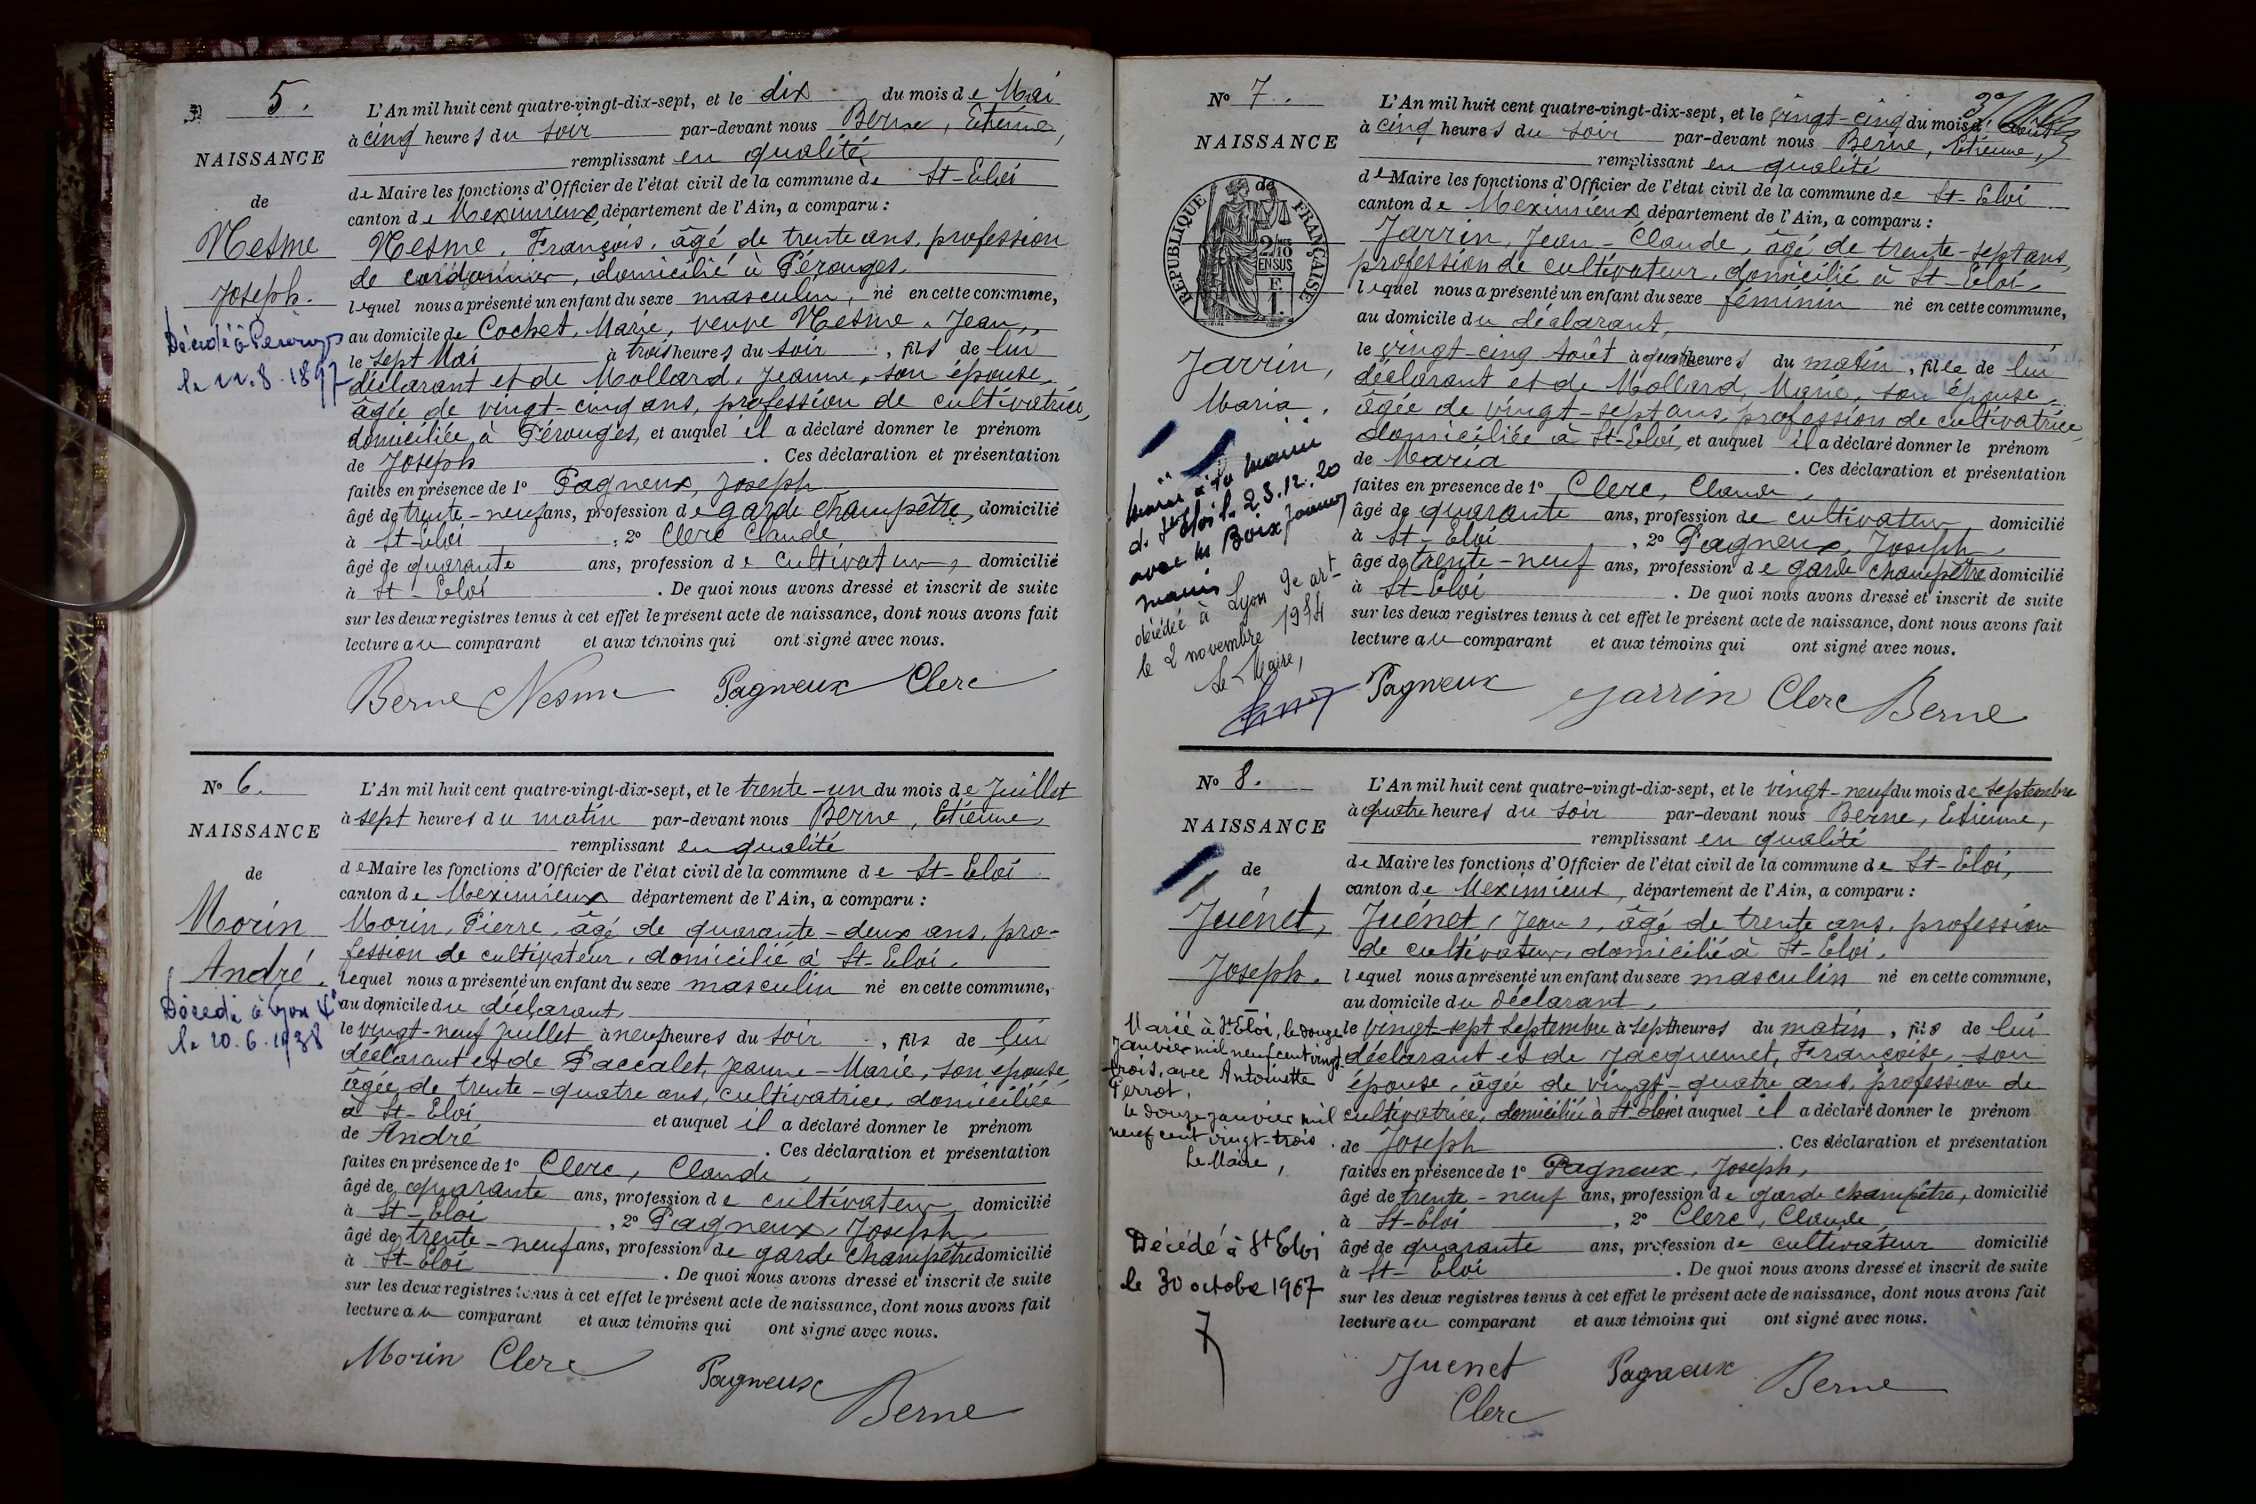 5.
NAISSANCE
de
Nesme
Joseph.
Décédé à Pérouges
le 22.8.1897
L'An mil huit cent quatre-vingt-dix-sept, et le dix du mois de Mai
à cinq heures du soir par-devant nous Berne, Etienne,
remplissant en qualité
de Maire les fonctions d'Officier de l'état civil de la commune de St-Eloi
canton de Meximieux, département de l'Ain, a comparu :
Nesme, François, âgé de trente ans, profession
de cordonnier, domicilié à Pérouges,
lequel nous a présenté un enfant du sexe masculin, né en cette commune,
au domicile de Cochet, Marie, veuve Nesme, Jean,
le sept Mai à trois heures du soir, fils de lui
déclarant et de Mollard, Jeanne, son épouse,
âgée de vingt-cinq ans, profession de cultivatrice,
domiciliée à Pérouges, et auquel il a déclaré donner le prénom
de Joseph. Ces déclaration et présentation
faites en présence de 1° Pagneux, Joseph
âgé de trente-neuf ans, profession de garde champêtre, domicilié
à St-Eloi, 2° Clerc Claude
âgé de quarante ans, profession de cultivateur, domicilié
à St-Eloi. De quoi nous avons dressé et inscrit de suite
sur les deux registres tenus à cet effet le présent acte de naissance, dont nous avons fait
lecture au comparant et aux témoins qui ont signé avec nous.
Berne Nesme Pagneux Clerc
N° 6.
NAISSANCE
de
Morin
André.
Décédé à Lyon 4e
le 20.6.1938
L'An mil huit cent quatre-vingt-dix-sept, et le trente-un du mois de Juillet
à sept heures du matin par-devant nous Berne, Etienne,
remplissant en qualité
de Maire les fonctions d'Officier de l'état civil de la commune de St-Eloi
canton de Meximieux département de l'Ain, a comparu :
Morin, Pierre, âgé de quarante-deux ans, pro-
fession de cultivateur, domicilié à St-Eloi,
lequel nous a présenté un enfant du sexe masculin né en cette commune,
au domicile du déclarant,
le vingt-neuf juillet à neuf heures du soir, fils de lui
déclarant et de Paccalet, Jeanne-Marie, son épouse,
âgée de trente-quatre ans, cultivatrice, domiciliée
à St-Eloi et auquel il a déclaré donner le prénom
de André. Ces déclaration et présentation
faites en présence de 1° Clerc, Claude,
âgé de quarante ans, profession de cultivateur domicilié
à St-Eloi, 2° Pagneux, Joseph,
âgé de trente-neuf ans, profession de garde champêtre domicilié
à St-Eloi. De quoi nous avons dressé et inscrit de suite
sur les deux registres tenus à cet effet le présent acte de naissance, dont nous avons fait
lecture au comparant et aux témoins qui ont signé avec nous.
Morin Clerc Pagneux
Berne
N° 7.
NAISSANCE
de
RÉPUBLIQUE FRANÇAISE
2/10
EN SUS
Jarrin,
Maria.
mariée à la mairie
de St Eloi le 23.12.20
avec
décédée à Lyon 9e art
le 2 novembre 1954
Le Maire,
3e
L'An mil huit cent quatre-vingt-dix-sept, et le vingt-cinq du mois d'Août
à cinq heures du soir par-devant nous Berne, Etienne,
remplissant en qualité
de Maire les fonctions d'Officier de l'état civil de la commune de St-Eloi
canton de Meximieux département de l'Ain, a comparu :
Jarrin, Jean-Claude, âgé de trente-sept ans,
profession de cultivateur, domicilié à St-Eloi,
lequel nous a présenté un enfant du sexe féminin né en cette commune,
au domicile du déclarant,
le vingt-cinq Août à quatre heures du matin, fille de lui
déclarant et de Mollard, Marie, son épouse,
âgée de vingt-sept ans, profession de cultivatrice,
domiciliée à St-Eloi, et auquel il a déclaré donner le prénom
de Maria. Ces déclaration et présentation
faites en présence de 1° Clerc, Claude,
âgé de quarante ans, profession de cultivateur, domicilié
à St-Eloi, 2° Pagneux, Joseph,
âgé de trente-neuf ans, profession de garde champêtre domicilié
à St-Eloi. De quoi nous avons dressé et inscrit de suite
sur les deux registres tenus à cet effet le présent acte de naissance, dont nous avons fait
lecture au comparant et aux témoins qui ont signé avec nous.
Pagneux Jarrin Clerc Berne
N° 8.
NAISSANCE
de
Juénet,
Joseph.
Marié à St Eloi, le douze
janvier mil neuf cent vingt-
trois, avec Antoinette
Perrot.
le douze janvier mil
neuf cent vingt-trois.
Le Maire,
Décédé à St Eloi
le 30 octobre 1967
L'An mil huit cent quatre-vingt-dix-sept, et le vingt-neuf du mois de Septembre
à quatre heures du soir par-devant nous Berne, Etienne,
remplissant en qualité
de Maire les fonctions d'Officier de l'état civil de la commune de St-Eloi,
canton de Meximieux, département de l'Ain, a comparu :
Juénet, Jean, âgé de trente ans, profession
de cultivateur, domicilié à St-Eloi,
lequel nous a présenté un enfant du sexe masculin né en cette commune,
au domicile du déclarant,
le vingt-sept Septembre à sept heures du matin, fils de lui
déclarant et de Jacquemet, Françoise, son
épouse, âgée de vingt-quatre ans, profession de
cultivatrice, domiciliée à St-Eloi et auquel il a déclaré donner le prénom
de Joseph. Ces déclaration et présentation
faites en présence de 1° Pagneux, Joseph,
âgé de trente-neuf ans, profession de garde champêtre, domicilié
à St-Eloi, 2° Clerc, Claude,
âgé de quarante ans, profession de cultivateur domicilié
à St-Eloi. De quoi nous avons dressé et inscrit de suite
sur les deux registres tenus à cet effet le présent acte de naissance, dont nous avons fait
lecture au comparant et aux témoins qui ont signé avec nous.
Juenet Pagneux Berne
Clerc